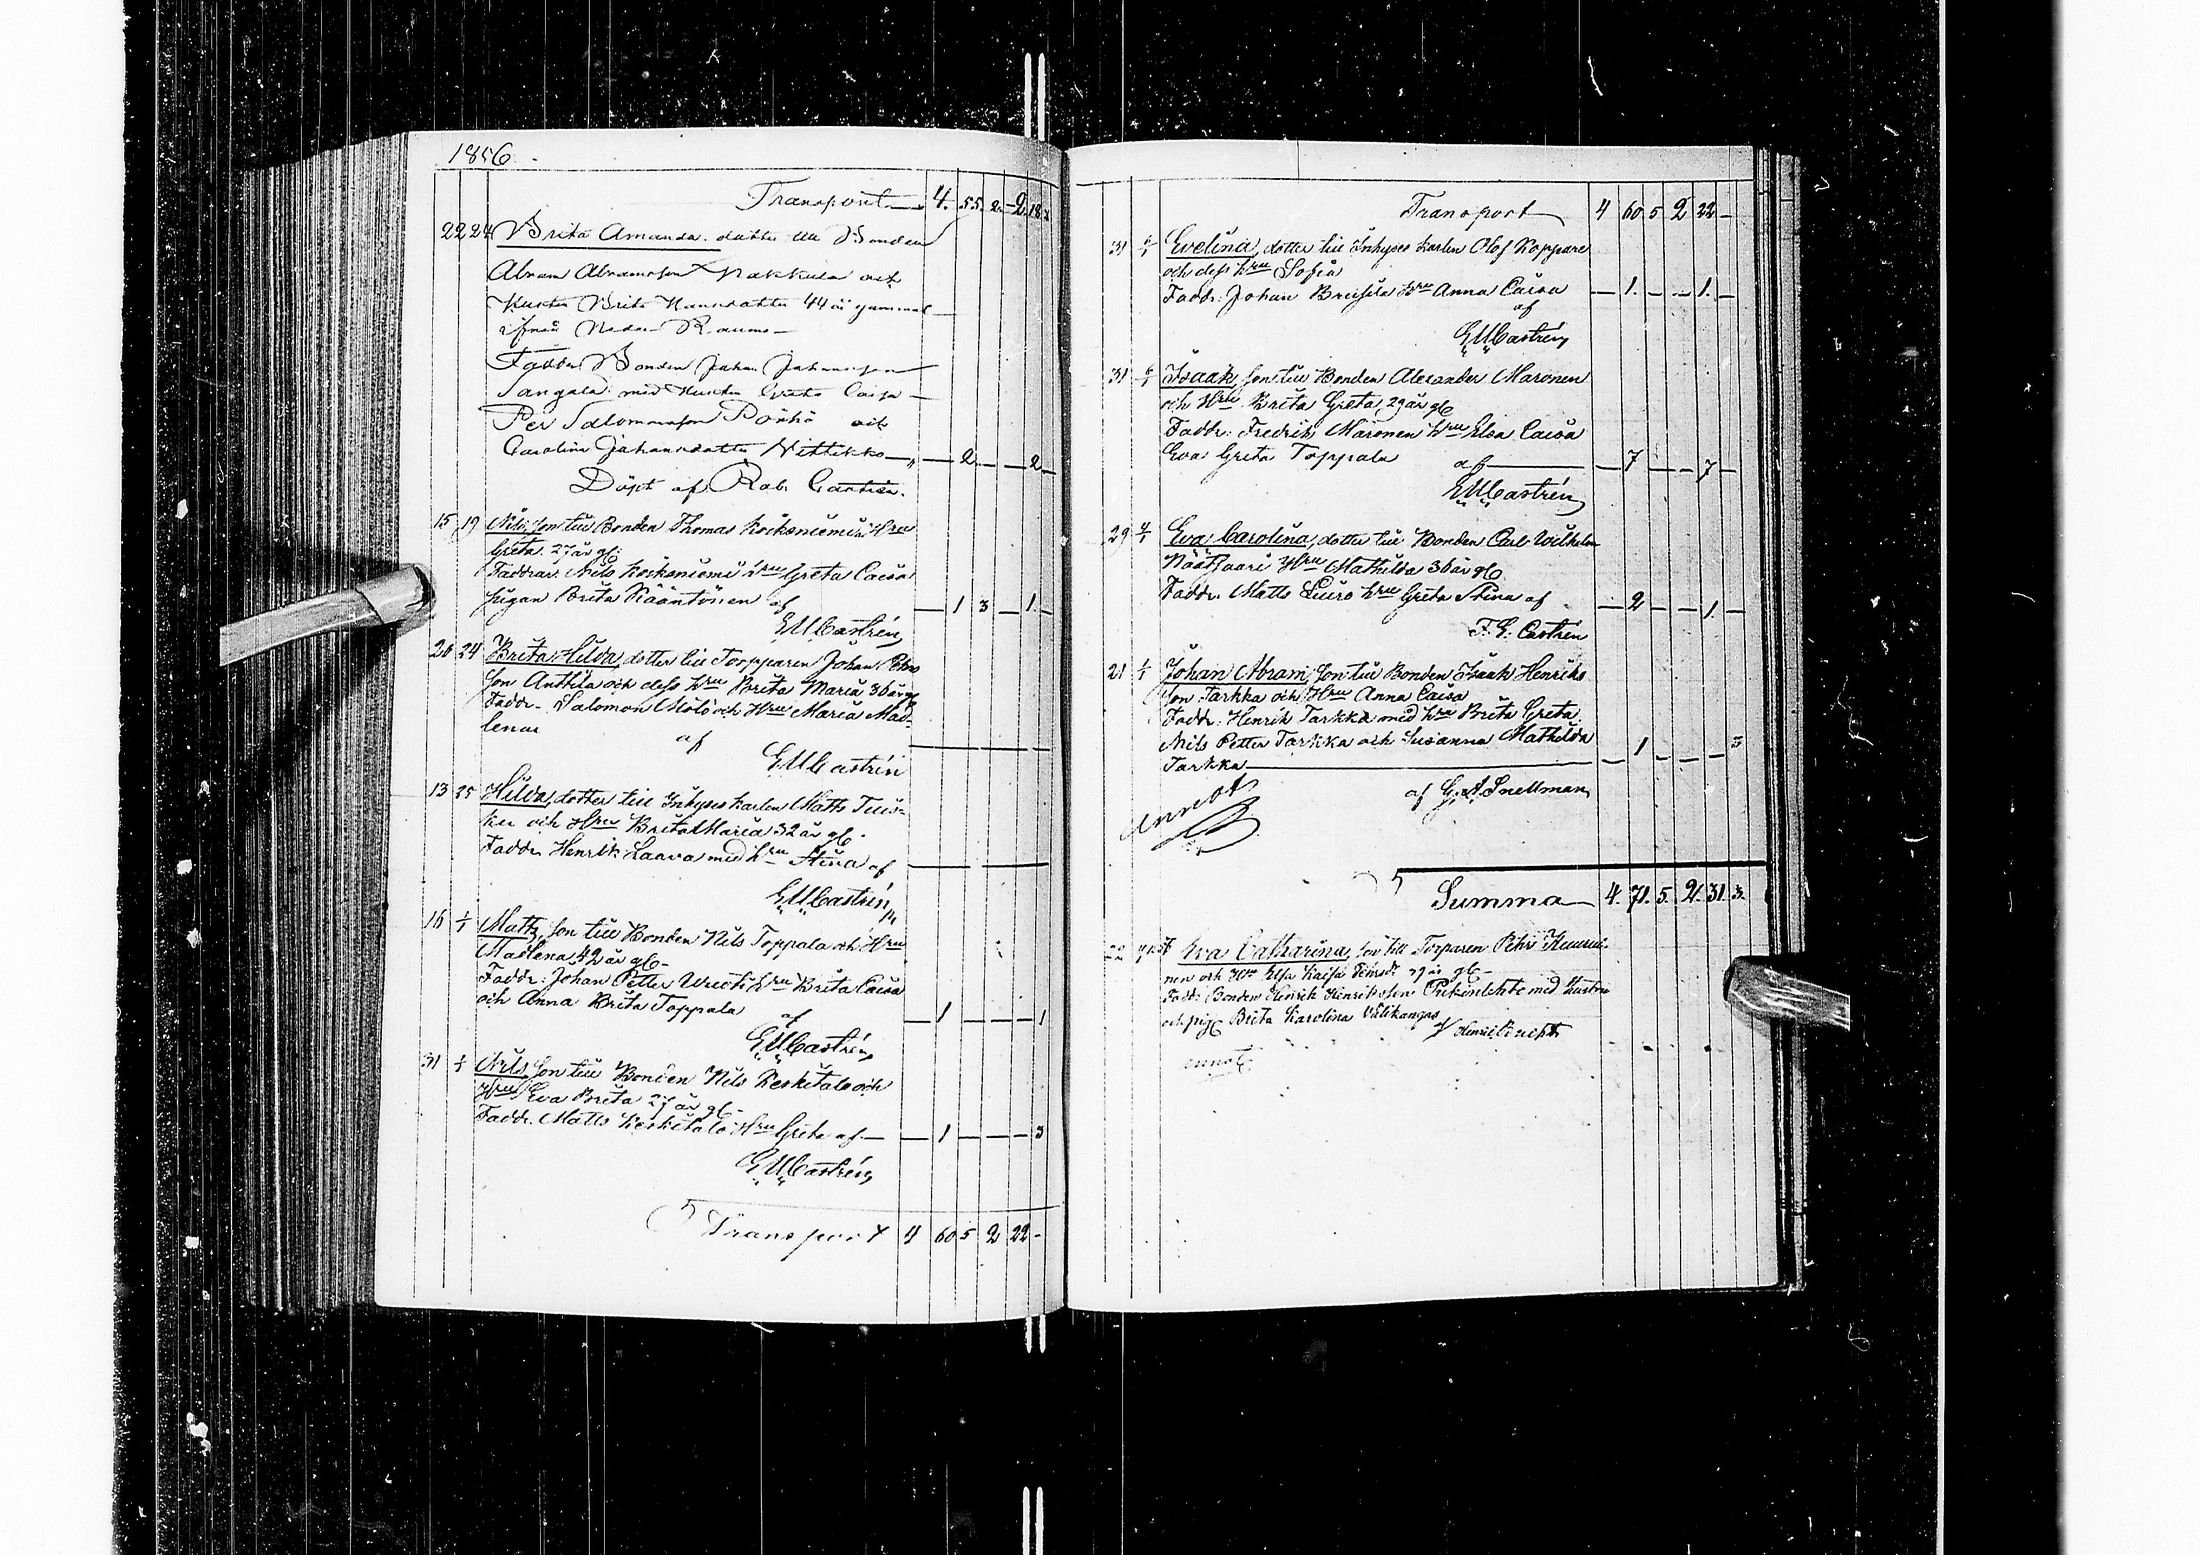 1856.
Transport 4. 55. 2. 2. 18.
22 24 Brita Amanda dotter till Bonden
Abram Abramsson Nakkula och
Hustru Brita Hansdotter 44 år gammal
ifrån Neder
Faddr Bonden Johan Johansson
Sangala med Hustru Greta Caisa
Per Salomonsson Pörhö och
Carolina Johansdotter Nittikko — 2 — — 2 —
Döpt af Rob. Castrén.
15 19 Nils, son till Bonden Thomas Koskeniemi Hru
Greta 27 år gl.
Faddrar: Nils Koskeniemi hru Greta Caisa
pigan Brita Kääntönen af — 1 3 — 1 —
E.M. Castrén
20 24 Brita Hilda, dotter till Torpparen Johan Petters
son Anttila och dess hru Brita Maria 36 år gl
Faddr. Salomon Molö och Hru Maria Mad-
lena af
E.M. Castrén
13 25 Hilda, dotter till Inhyses karlen Matts Tuis-
ku och Hru Brita Maria 32 år gl.
Faddr. Henrik Laava med hru Stina af
E.M. Castrén
16 Matts, son till Bonden Nils Toppala och Hru
Madlena 42 år gl.
Faddr: Johan Petter hru Brita Caisa
och Anna Brita Toppala af — 1 — — — 1
E.M. Castrén
31 Nils, son till Bonden Nils Keskitalo och
Hru Eva Brita 27 år gl.
Faddr. Matts Keskitalo Hru Greta af — 1 — — — 3
E.M. Castrén
Transport 4 60 5 2 22 -
Transport 4 60 5 2 22 —
31 Evelina, dotter till Inhyses karlen Olof Koppare
och dess hru Sofia
Faddr: Johan hru Anna Caisa — 1. — — 1. —
af
E.M. Castrén
31 Isaak, son till Bonden Alexander Maronen
och Hru Brita Greta, 29 år gl
Faddr: Fredrik Maronen hru Elsa Caisa
Eva Greta Toppala af — 7 — — 7 —
E.M. Castrén
29 Eva Carolina, dotter till Bonden Carl Wilhelm
Näätsaari Hru Mathilda 36 år gl
Faddr. Matts Luiro hru Greta Stina af — 2 — — 1. —
F.E. Castrén
21 Johan Abram, son till Bonden Isaak Henriks
son Tarkka och Hru Anna Caisa
Faddr: Henrik Tarkka med hru Brita Greta
Nils Petter Tarkka och Susanna Mathilda
Tarkka — 1 — — — 3
af G.A. Snellman
Annot
Summa 4. 71. 5. 2. 31. 3.
22 Eva Catharina, till Torparen Pehr
nen och Hru Elsa Kaisa 29 år gl.
Faddr: Bonden Henrik Henriksson med Hustru
och pig. Brita Karolina Välikangas
af Henric
annot